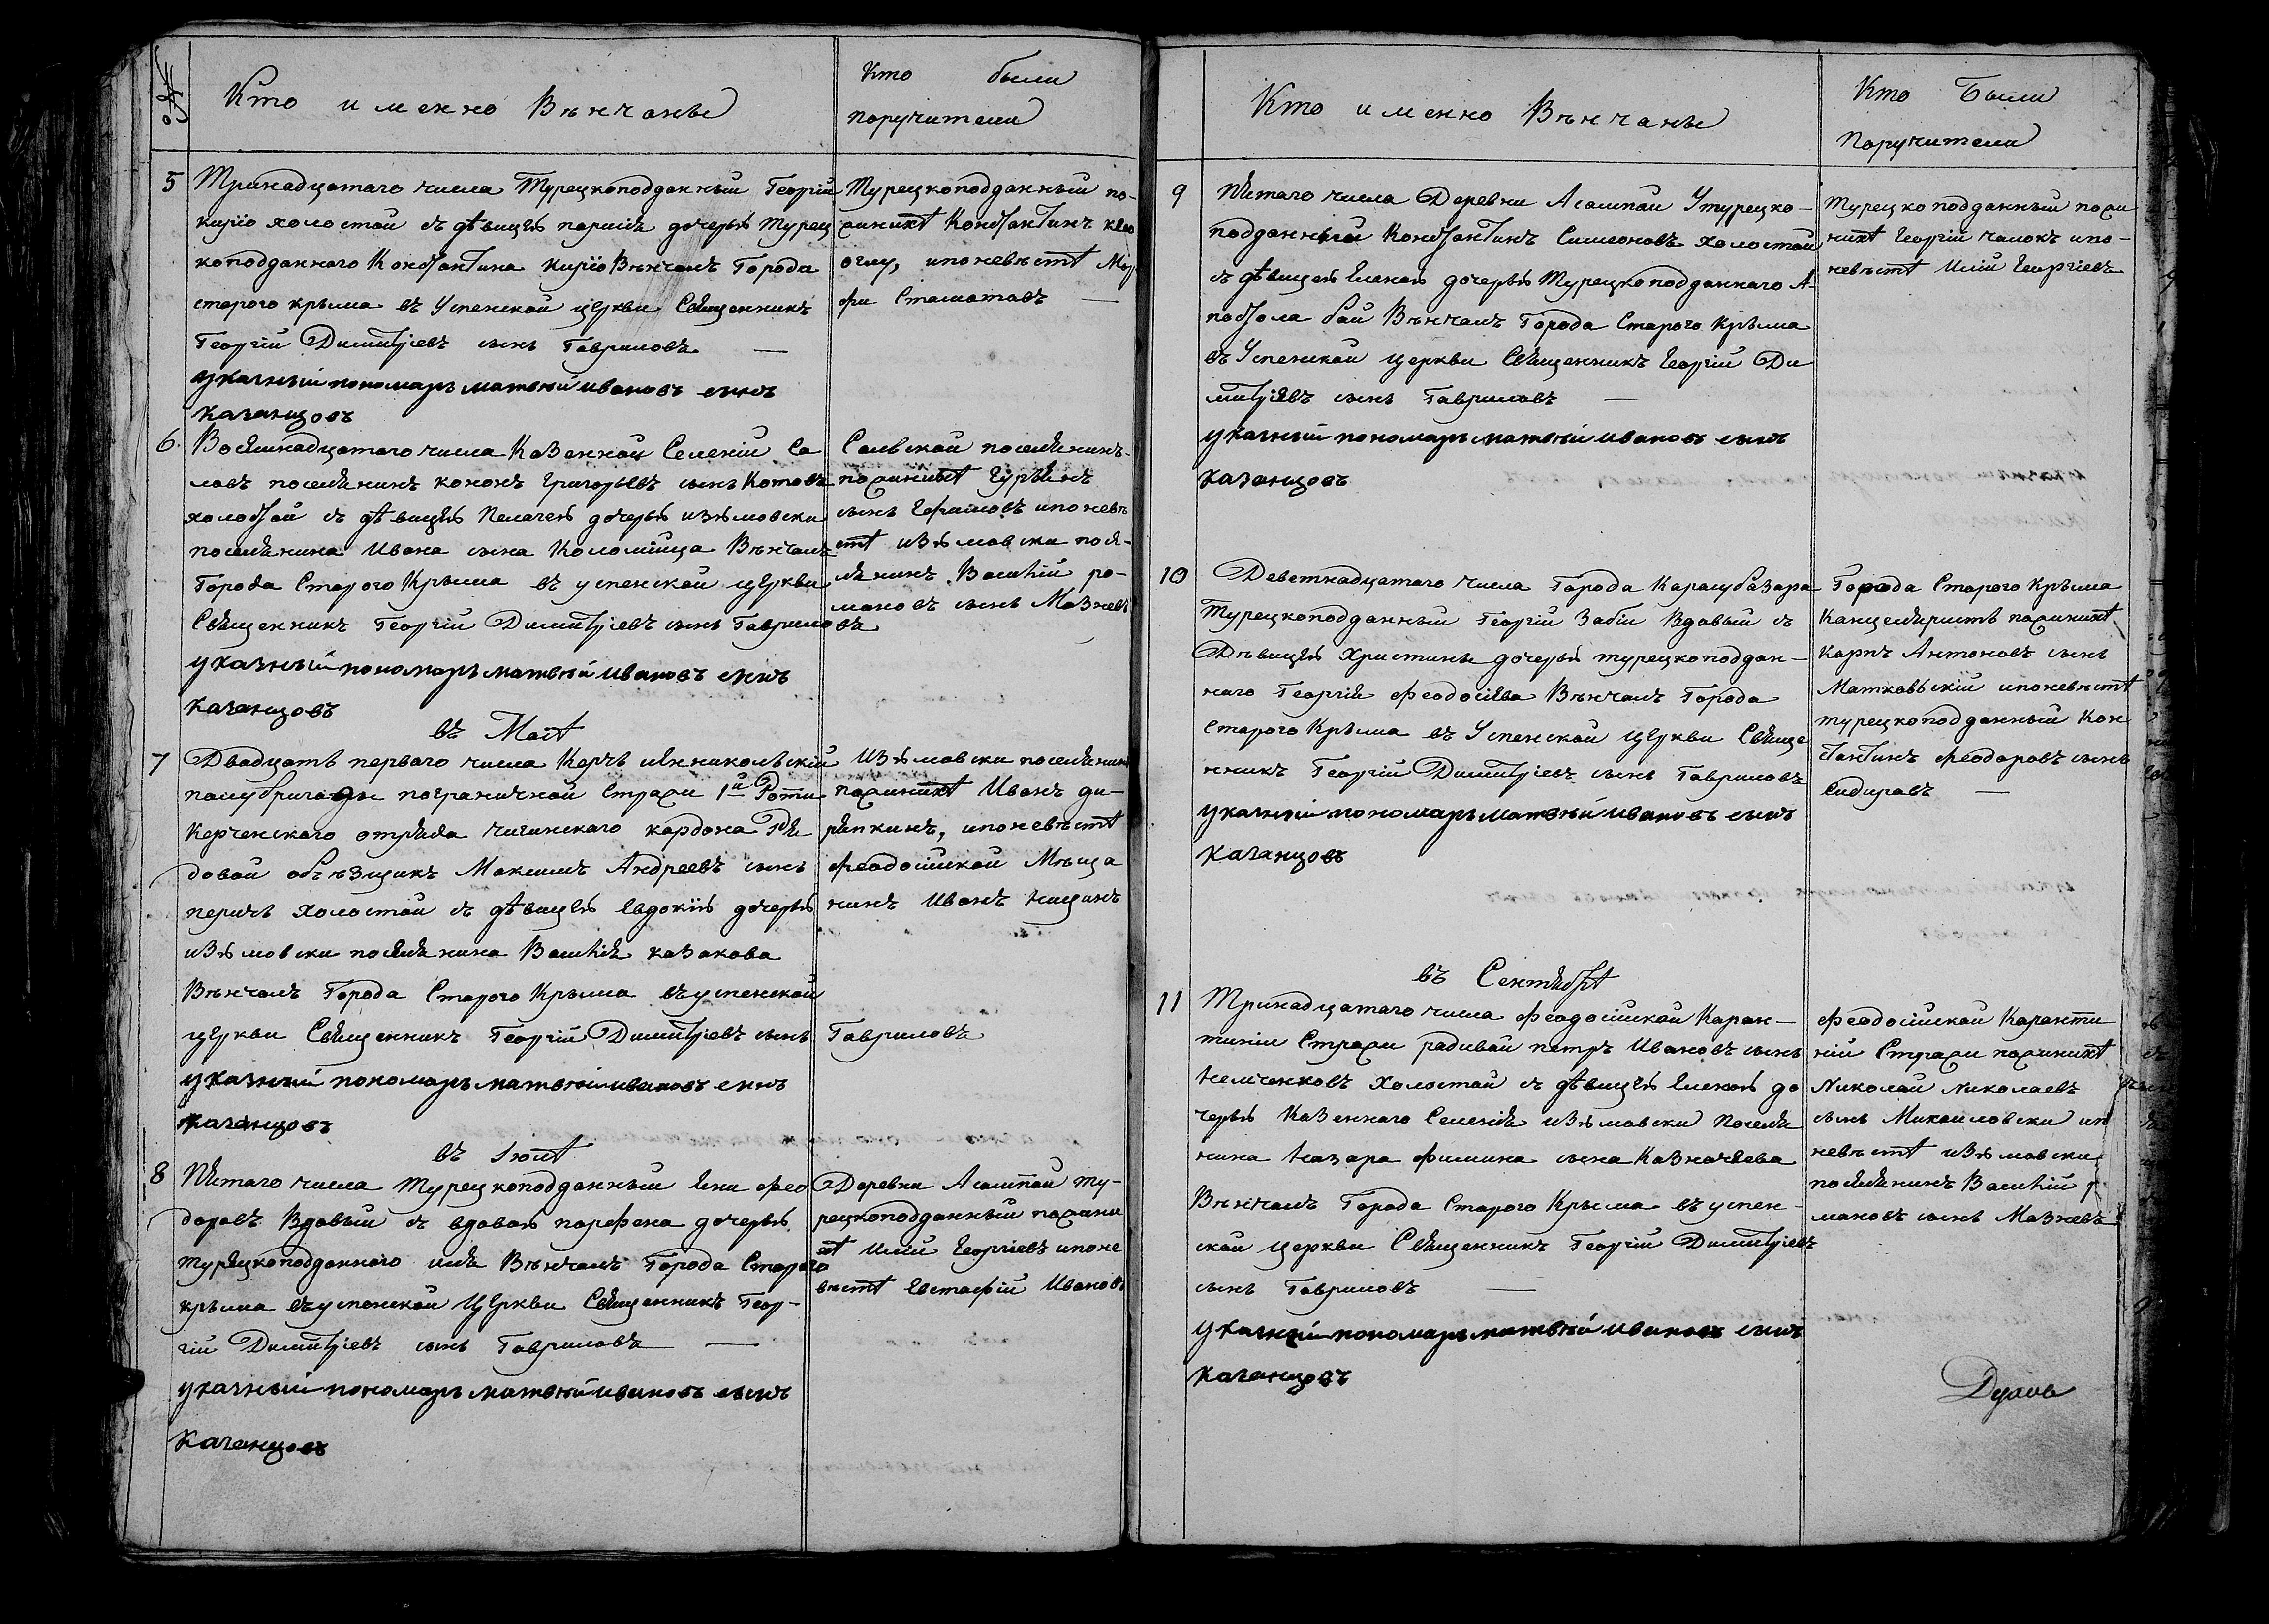 №
Кто именно Вѣнчаны
Кто были
поручители
5
Тринадцатаго числа Турецкоподданный Георгій
кирїо холостой съ дѣвицей дочерью Турец
коподданнаго Константина кирїо Вѣнчалъ Города
старого крыма въ Успенской церкви Священникъ
Георгій Димитріевъ сынъ Гавриловъ —
указный пономарь матвѣй ивановъ сынъ
казанцовъ
Турецкоподданный по
женихѣ Константинъ
оглу, и по невѣстѣ
Стаматовъ —
6.
Восемнадцатаго числа Казенной Селеніи Са
ловъ поселянинъ кононъ Григорьевъ сынъ Котовъ
холостой съ дѣвицей Пелагеей дочерью изюмовски
поселянина Ивана сына Коломійца Вѣнчалъ
Города Старого Крыма въ успенской церкви
Священникъ Георгій Димитріевъ сынъ Гавриловъ
указный пономарь матвѣй ивановъ сынъ
казанцовъ
Сальской поселянинъ
по женихѣ
сынъ Ефимовъ и по невѣ
стѣ изюмовски посе-
лянинъ Василій ро-
мановъ сынъ Мазневъ
въ Маѣ
7
Двадцать перваго числа Керчь еникольской
полубригады пограничной Стражи 1й Роты
Керченскаго отряда чигинскаго кардона Ря
довой объѣзщикъ Максимъ Андреевъ сынъ
перичъ холостой съ дѣвицей Евдокіей дочерью
изюмовски поселянина Василія казакова
Вѣнчалъ Города Старого Крыма въ успенской
церкви Священникъ Георгій Димитріевъ сынъ Гавриловъ
указный пономарь матвѣй ивановъ сынъ
казанцовъ
Изюмовски поселянинъ
по женихѣ Иванъ ди-
рѣпкинъ, и по невѣстѣ
феодосійской Мѣща
нинъ Иванъ Нищинъ
въ Іюлѣ
8
Пятаго числа Турецкоподданный Яни фео
доровъ Вдовый съ вдовой парфена дочерью
турецкоподданнаго иля Вѣнчалъ Города Старого
крыма въ успенской церкви Священникъ Геор-
гій Димитріевъ сынъ Гавриловъ —
указный пономарь матвѣй ивановъ сынъ
казанцовъ
Деревни Асампай ту-
рецкоподданный по жени
хѣ Илій Георгіевъ и по не
вѣстѣ Евстафій Ивановъ
Кто именно Вѣнчаны
Кто Были
Поручители
9
Пятаго числа Деревни Асампай Утурецко-
подданный Константинъ Симеоновъ холостой
съ дѣвицей Еленой дочерью Турецкоподданнаго А-
постола бай Вѣнчалъ Города Старого крыма
въ Успенской церкви Священникъ Георгій Ди
митріевъ сынъ Гавриловъ —
указный пономарь матвѣй ивановъ сынъ
казанцовъ
Турецкоподданный по же
нихѣ Георгій чалокъ и по-
невѣстѣ Илій Георгіевъ
10
Деветнадцатаго числа Города Карасубазара
Турецкоподданный Георгій Забїи Вдовый съ
Дѣвицей Христины дочерью турецкоподдан-
наго Георгія феодосіева Вѣнчалъ Города
старого Крыма въ Успенской церкви Свяще
нникъ Георгій Димитріевъ сынъ Гавриловъ
указный пономарь матвѣй ивановъ сынъ
казанцовъ
Города Старого Крыма
Канцеляристъ по женихѣ
Карпъ Антоновъ сынъ
Матковскій и по невѣстѣ
турецкоподданный Кон
стантинъ феодоровъ сынъ
Сидиравъ —
въ Сентябрѣ
11
Тринадцатаго числа феодосійской Каран-
тиніи Стражи радивай петръ Ивановъ сынъ
Немченковъ холостой съ дѣвицей Еленой до
черью Казеннаго Селенія изюмовски Поселя
нина Назара фимина сына Казначеева
Вѣнчалъ Города Старого Крыма въ успен-
ской церкви Священникъ Георгій Димитріевъ
сынъ Гавриловъ —
указный пономарь матвѣй ивановъ сынъ
казанцовъ
феодосійской Каранти
ній Стражи по женихѣ
Николай Николаевъ
сынъ Михайловски и п
невѣстѣ изюмовски
поселянинъ Василій р
мановъ сынъ Мазневъ